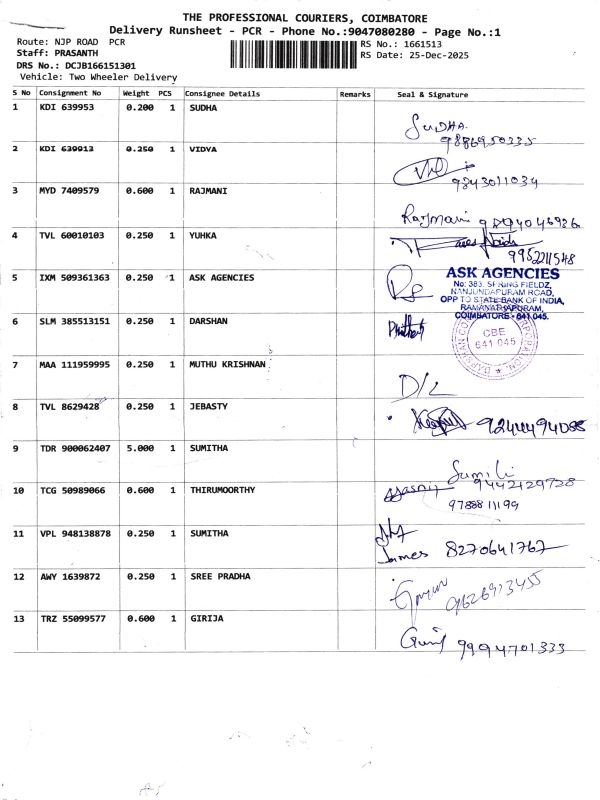 THE PROFESSIONAL COURIERS, COIMBATORE
Delivery Runsheet - PCR - Phone No.:9047080280 - Page No.:1
Route: NJP ROAD PCR
RS No.: 1661513
Staff: PRASANTH
RS Date: 25-Dec-2025
DRS No.: DCJB166151301
Vehicle: Two Wheeler Delivery
S No Consignment No Weight PCS Consignee Details Remarks Seal & Signature
1 KDI 639953 0.200 1 SUDHA SUDHA
9886950235
2 KDI 639913 0.250 1 VIDYA
9843011034
3 MYD 7409579 0.600 1 RAJMANI Rajmani
4 TVL 60010103 0.250 1 YUHKA
9952211548
5 IXM 509361363 0.250 1 ASK AGENCIES ASK AGENCIES
No: 383, SPRING FIELDZ,
NANJUNDAPURAM ROAD,
OPP TO STATE BANK OF INDIA,
RAMANATHAPURAM,
COIMBATORE - 641 045.
6 SLM 385513151 0.250 1 DARSHAN
CBE
641 045
7 MAA 111959995 0.250 1 MUTHU KRISHNAN D/L
8 TVL 8629428 0.250 1 JEBASTY 9244494085
9 TDR 900062407 5.000 1 SUMITHA
9442129728
10 TCG 50989066 0.600 1 THIRUMOORTHY
9788811199
11 VPL 948138878 0.250 1 SUMITHA
James 8270641767
12 AWY 1639872 0.250 1 SREE PRADHA
9626913455
13 TRZ 55099577 0.600 1 GIRIJA
9994701333